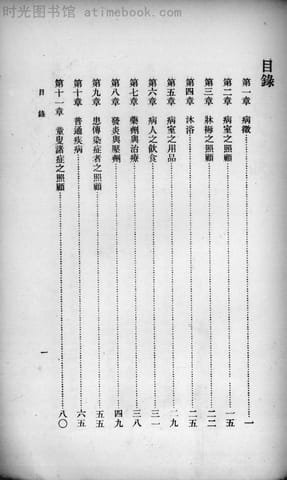 时光图书馆 atimebook.com
目錄
第一章 病徵……一
第二章 病室之照顧……一五
第三章 牀褥之照顧……二二
第四章 沐浴……二五
第五章 病室之用品……二九
第六章 病人之飲食……三一
第七章 藥劑與治療……三八
第八章 發炎與壓劑……四九
第九章 患傳染症者之照顧……五五
第十章 普通疾病……六五
第十一章 童叟諸症之照顧……八〇
目錄 一